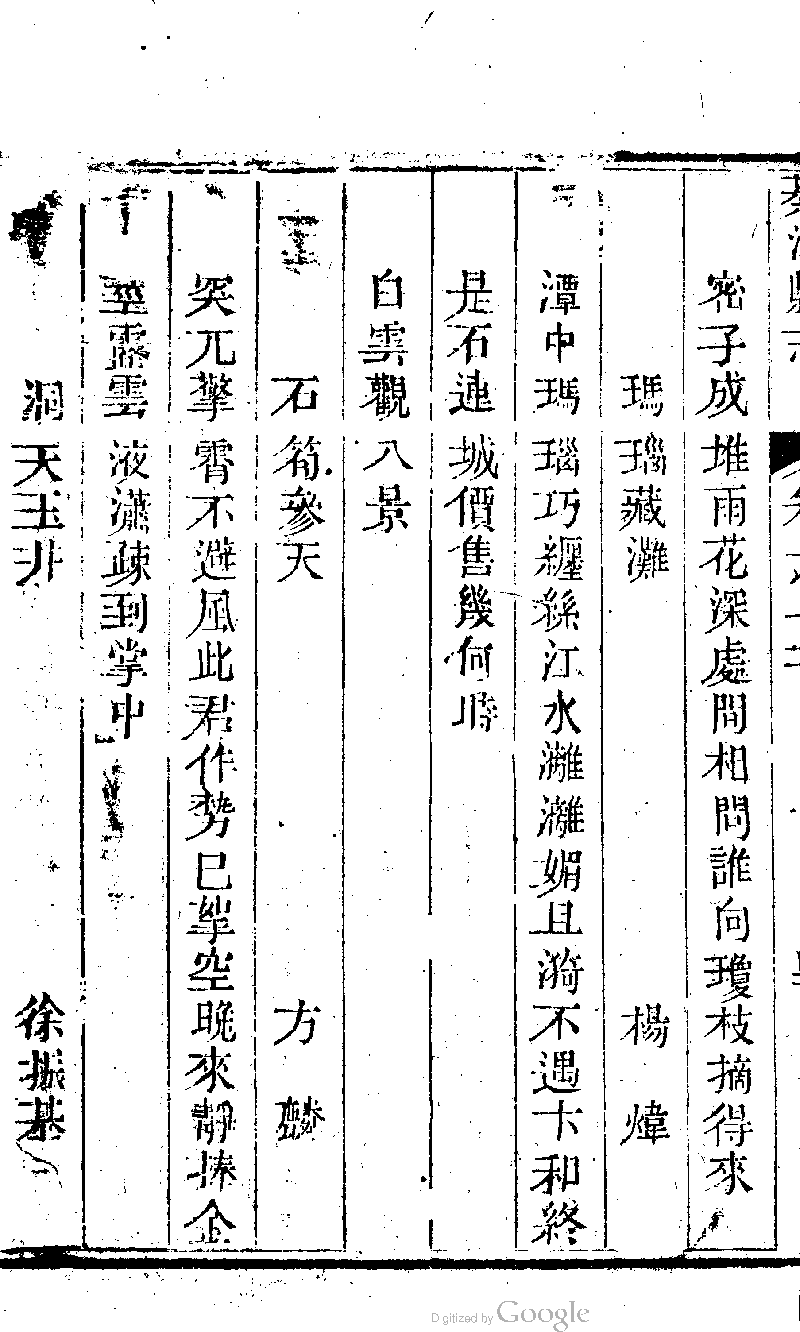 密子成堆雨花深處問相問誰向瓊枝摘得來
瑪瑙藏灘 楊煒
潭中瑪瑙巧纏絲江水灕灕媚且漪不遇卞和終
是石連城價售幾何時
白雲觀八景
石筍參天 方
突兀擎霄不避風此君作勢已拏空晚來靜捧金
莖露雲液瀟疎到掌中
洞天玉井 徐振基
Digitized by Google